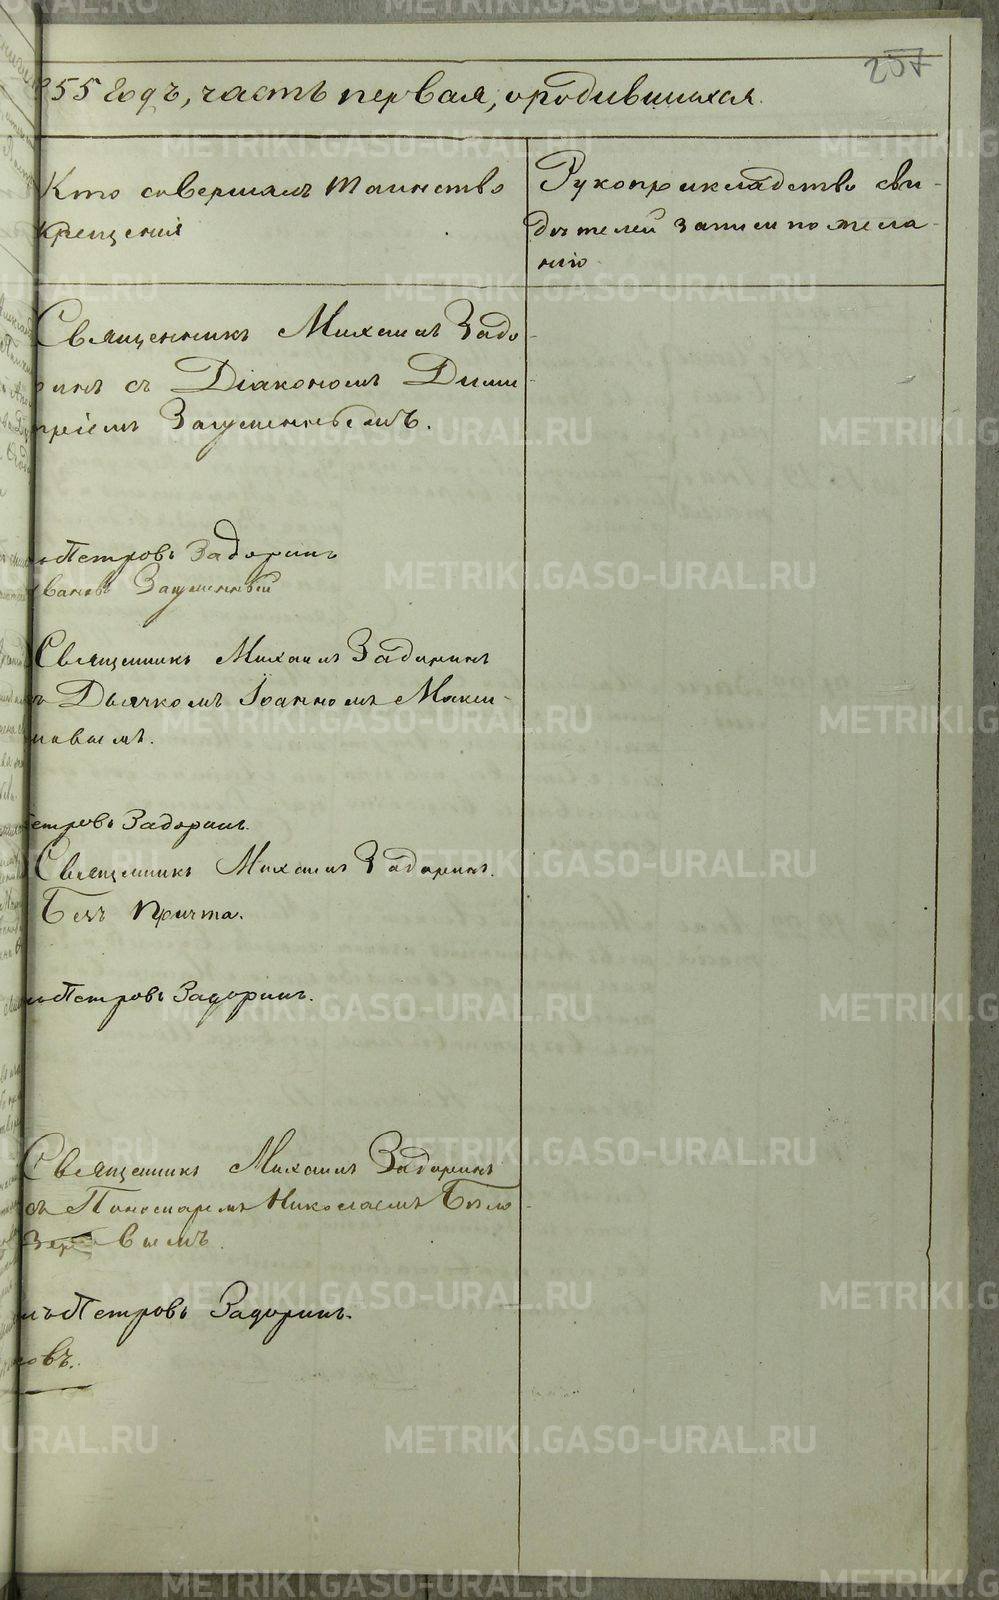 257
855 Годъ, часть первая, о родившихся.
Кто совершалъ таинство
крещенія
Рукоприкладство сви-
дѣтелей записи по жела-
нію
Священникъ Михаилъ Задо-
ринъ съ Діакономъ Дими-
тріемъ Загуменнымъ.
Петровъ Задоринъ
Ивановъ Загуменный
Священникъ Михаилъ Задоринъ
съ Дьячкомъ Іоанномъ Макси-
мовымъ.
Петровъ Задоринъ.
Священникъ Михаилъ Задоринъ.
Безъ причта.
Петровъ Задоринъ.
Священникъ Михаилъ Задоринъ
съ Пономаремъ Николаемъ Бѣло-
вымъ.
лъ Петровъ Задоринъ.
овъ.
METRIKI.GASO-URAL.RU